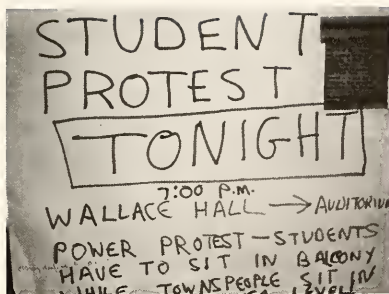 STUDENT
PROTEST
TONIGHT
7:00 P.M.
WALLACE HALL → AUDITORIUM
POWER PROTEST - STUDENTS
HAVE TO SIT IN BALCONY
WHILE TOWNSPEOPLE SIT IN
LEVEL